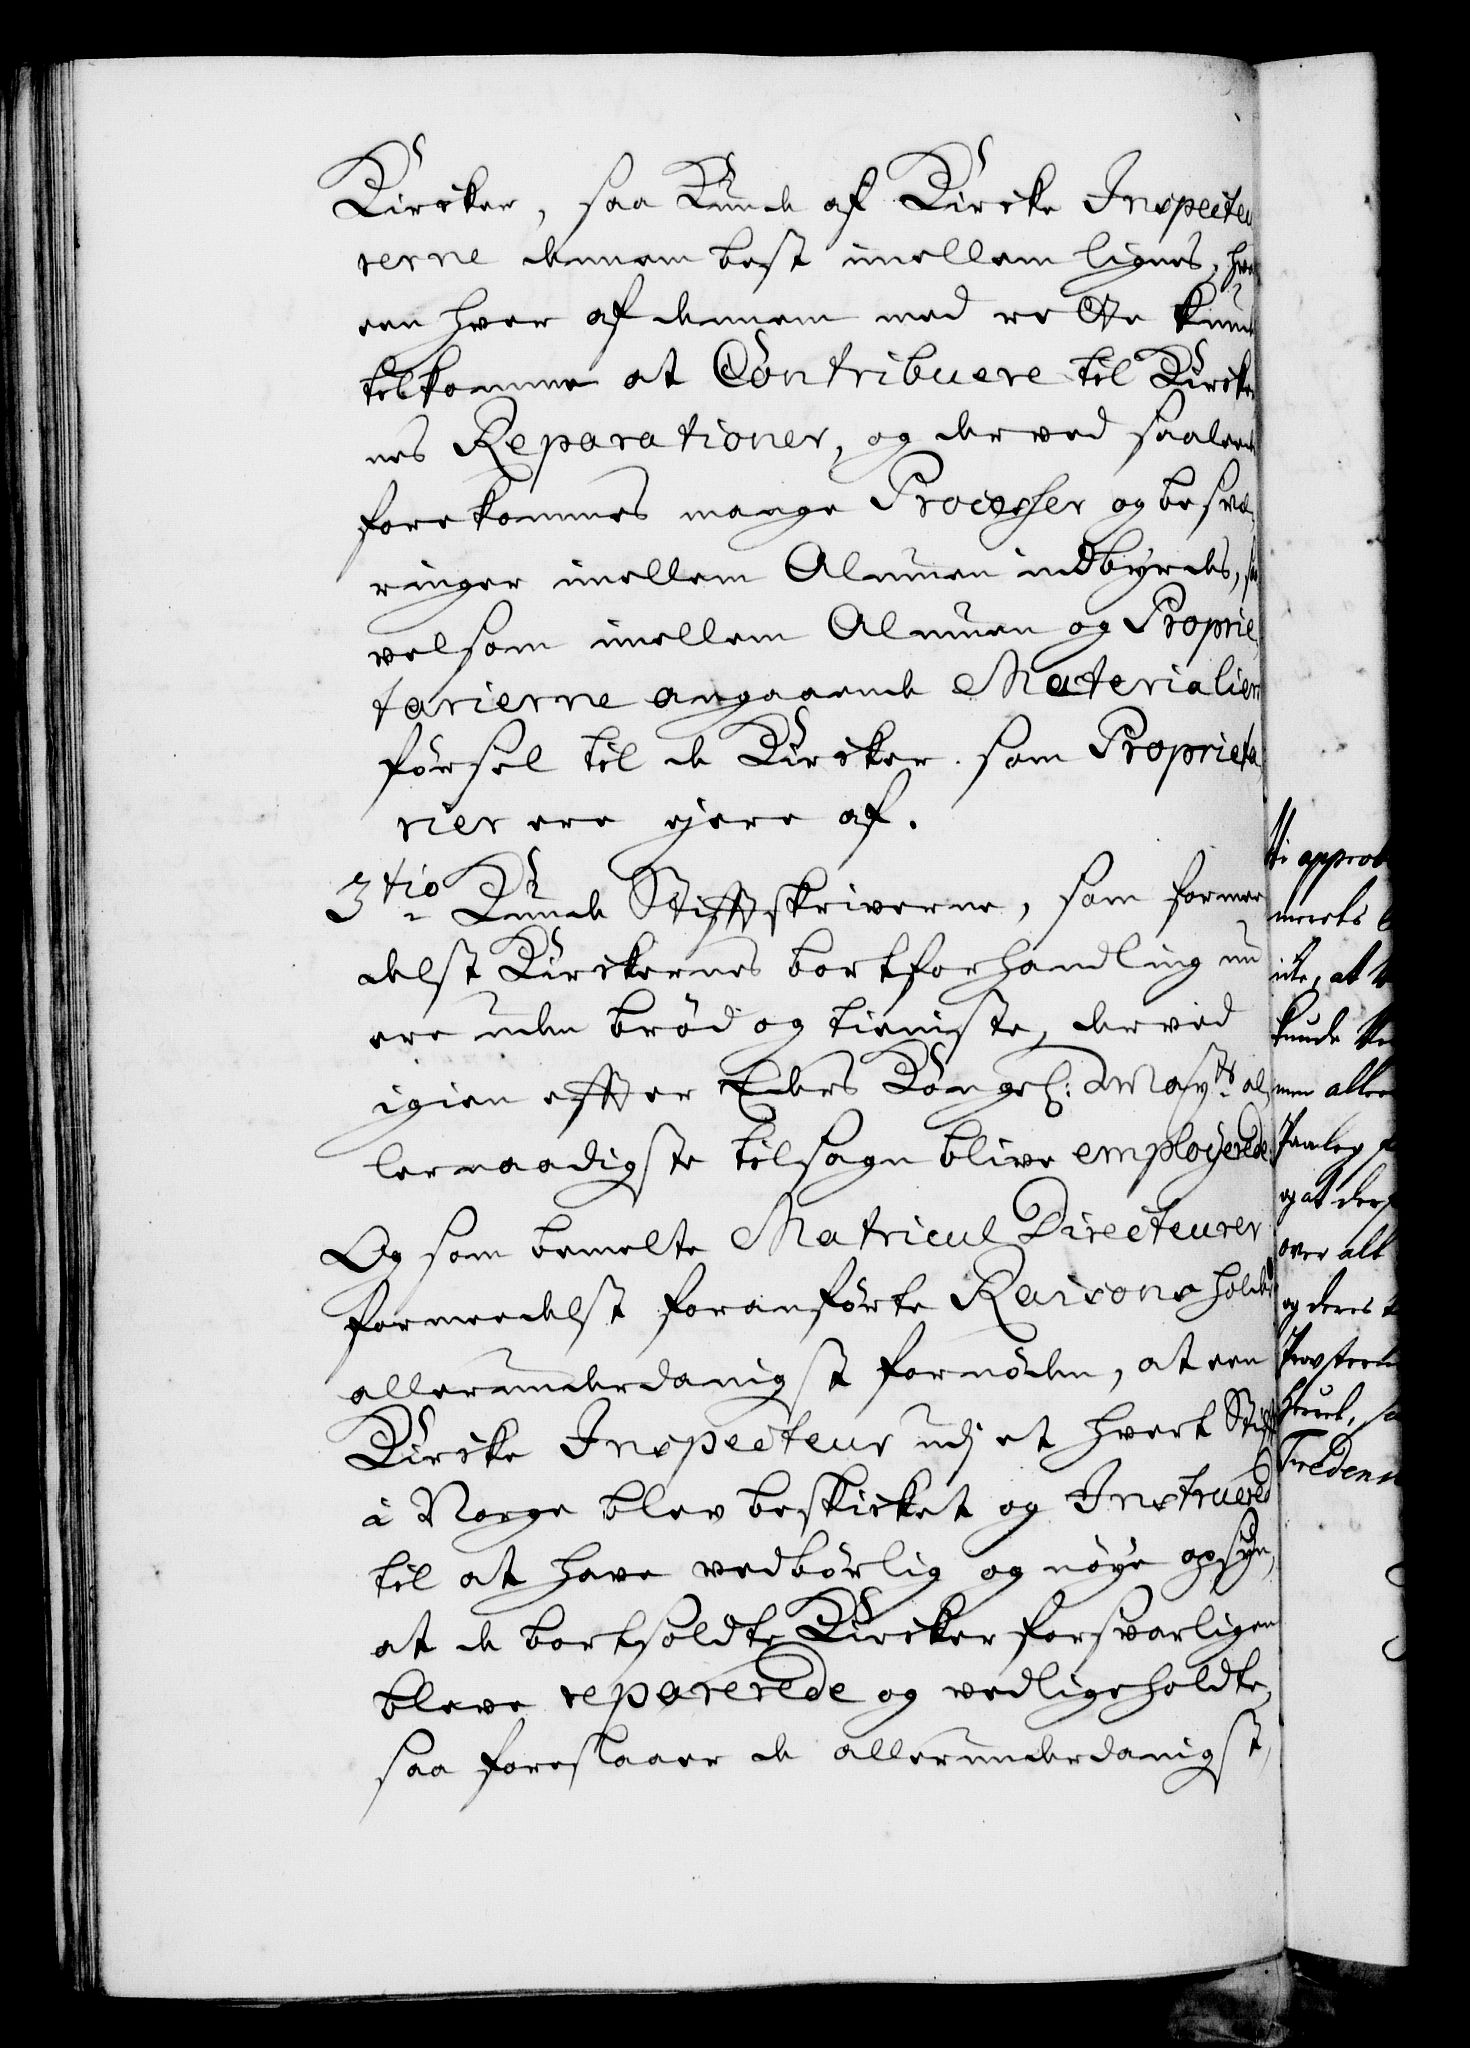 Kircker, saa Kunde af Kircke Inspecteu
rerne dennem best imellem lignes, hva
een hver af dennem med rette kunde
tilkomme at Contribuere til Kircker
nes Reparationer, og derved saaleedes
forekommes mange Processer og besvæ,
ringer imellem Almuen indbyrdes, saa
velsom imellem Almuen og Proprie,
tarierne angaaende Materialiers
førsel til de Kircker som Proprieta
rier ere ejere af.
3tio Kunde Stifftskriverne, som forme
delst Kirckernes bortforhandling nu
ere uden brød og tieniste, derved
igien effter Eders Kongel: Mayts al,
lernaadigste tilsagn blive employerede
Og som bemelte Matricul Directeurer
formedelst foranførte Raisons holder
allerunderdanigst fornøden, at een
Kircke Inspecteur udj et hvert Stifft
i Norge blev beskicket og Instrueret
til at have vedbørlig og nøye opsyn,
at de bortsoldte Kircker forsvarligen
bleve reparerede og vedligeholdte,
saa foreslaaer de allerunderdanigst,
ti approb
meets
ite, at
kunde
men aller
Paaleg
og at der
over alt
og deres
Provster
Fredens